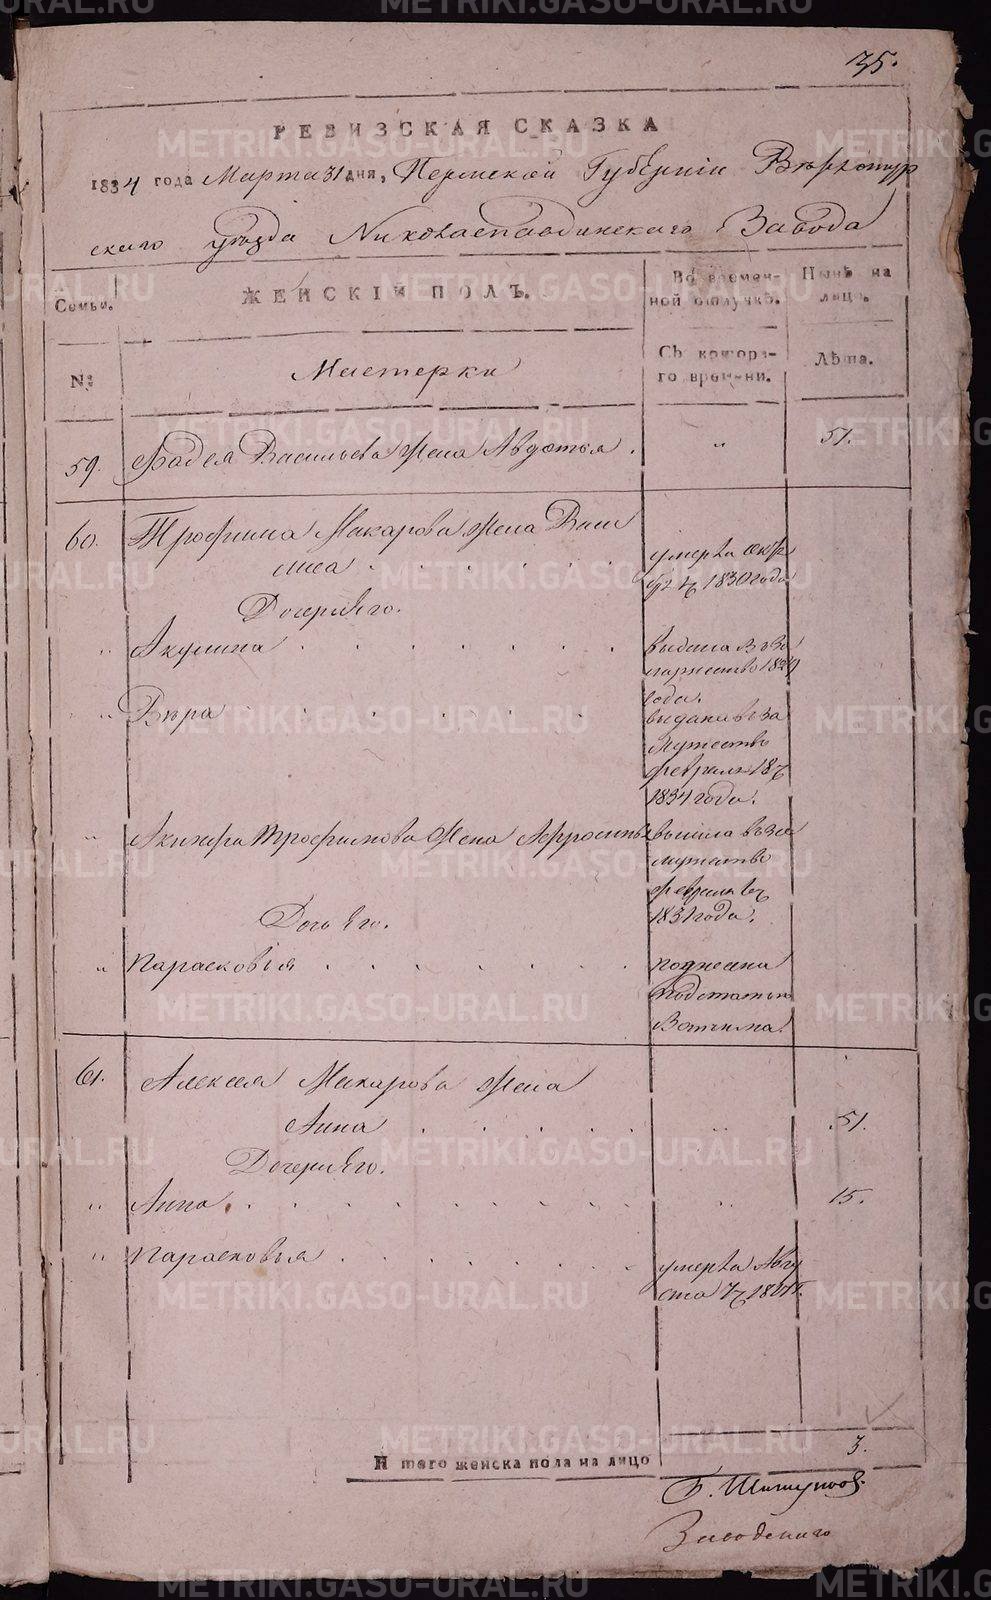 35.
РЕВИЗСКАЯ СКАЗКА
1834 года Марта 31 дня, Пермской Губерніи Верхотур
скаго уѣзда Николаепавдинскаго Завода
Семьи.
ЖЕНСКІЙ ПОЛЪ.
Во времен-
ной отлучкѣ.
Нынѣ на
лицо.
№
Мастерки
Съ котора-
го времени.
Лѣта.
59. Фадея Васильева Жена Авдотья. " 51.
60. Трофима Макарова Жена Васи
лиса
умерла
1830 года
Дочери Его.
" Акулина
выдана въ за
мужество 1829
года.
" Вѣра
выдана въ за
мужество
февраля
1834 года.
" Трофимова Жена
вышла въ за
мужество
февраля
1831 года.
Дочь Его.
" Парасковья
Вотчима.
61. Алексея Макарова Жена
Анна " 51.
Дочери Его.
" Анна " 15.
" Парасковья
умерла Авгу
ста
Итого женска пола на лицо 3.
METRIKI.GASO-URAL.RU